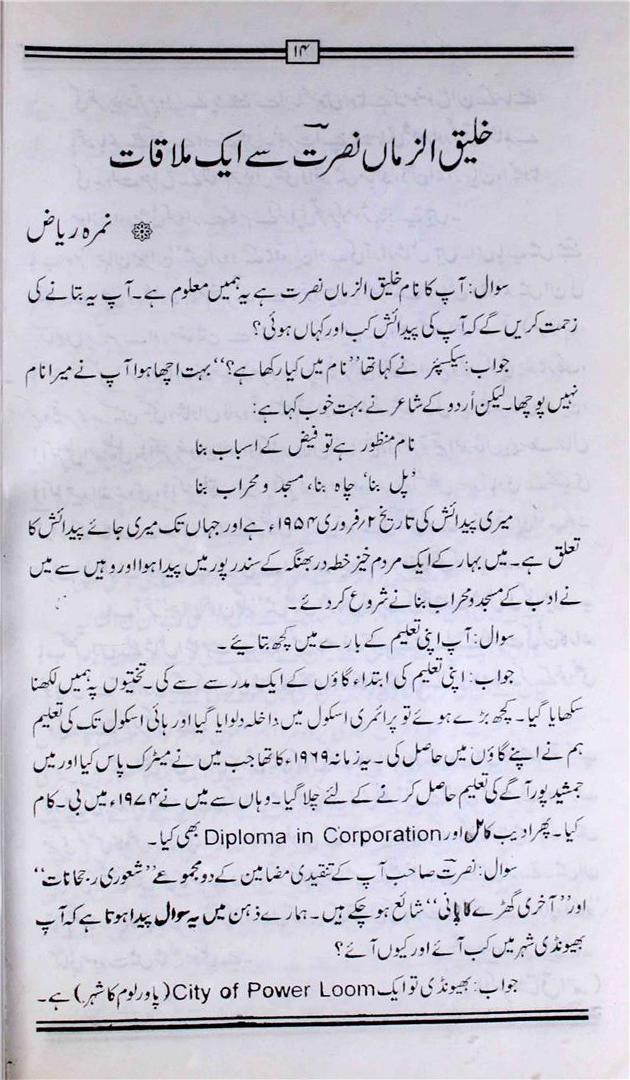 ۱۴
خلیق الزماں نصرتؔ سے ایک ملاقات
نمرہ ریاض
سوال: آپ کا نام خلیق الزماں نصرت ہے یہ ہمیں معلوم ہے۔ آپ یہ بتانے کی
زحمت کریں گے کہ آپ کی پیدائش کب اور کہاں ہوئی؟
جواب: سیکسپئر نے کہا تھا ’’نام میں کیا رکھا ہے؟‘‘ بہت اچھا ہوا آپ نے میرا نام
نہیں پوچھا۔ لیکن اُردو کے شاعر نے بہت خوب کہا ہے:
نام منظور ہے تو فیض کے اسباب بنا
’پل بنا‘ چاہ بنا، مسجد و محراب بنا
میری پیدائش کی تاریخ ۲؍فروری ۱۹۵۴ء ہے اور جہاں تک میری جائے پیدائش کا
تعلق ہے۔ میں بہار کے ایک مردم خیز خطہ دربھنگہ کے سندر پور میں پیدا ہوا اور وہیں سے میں
نے ادب کے مسجد و محراب بنانے شروع کر دئے۔
سوال: آپ اپنی تعلیم کے بارے میں کچھ بتائیے۔
جواب: اپنی تعلیم کی ابتداء گاؤں کے ایک مدرسے سے کی۔ تختیوں پہ ہمیں لکھنا
سکھایا گیا۔ کچھ بڑے ہوئے تو پرائمری اسکول میں داخلہ دلوایا گیا اور ہائی اسکول تک کی تعلیم
ہم نے اپنے گاؤں میں حاصل کی۔ یہ زمانہ ۱۹۶۹ء کا تھا جب میں نے میٹرک پاس کیا اور میں
جمشید پور آگے کی تعلیم حاصل کرنے کے لئے چلا گیا۔ وہاں سے میں نے ۱۹۷۴ء میں بی۔ کام
کیا۔ پھر ادیب کامل اور Diploma in Corporation بھی کیا۔
سوال: نصرتؔ صاحب آپ کے تنقیدی مضامین کے دو مجموعے ’’شعوری رجحانات‘‘
اور ’’آخری گھڑے کا پانی‘‘ شائع ہو چکے ہیں۔ ہمارے ذہن میں یہ سوال پیدا ہوتا ہے کہ آپ
بھیونڈی شہر میں کب آئے اور کیوں آئے؟
جواب: بھیونڈی تو ایک City of Power Loom (پاور لوم کا شہر) ہے۔